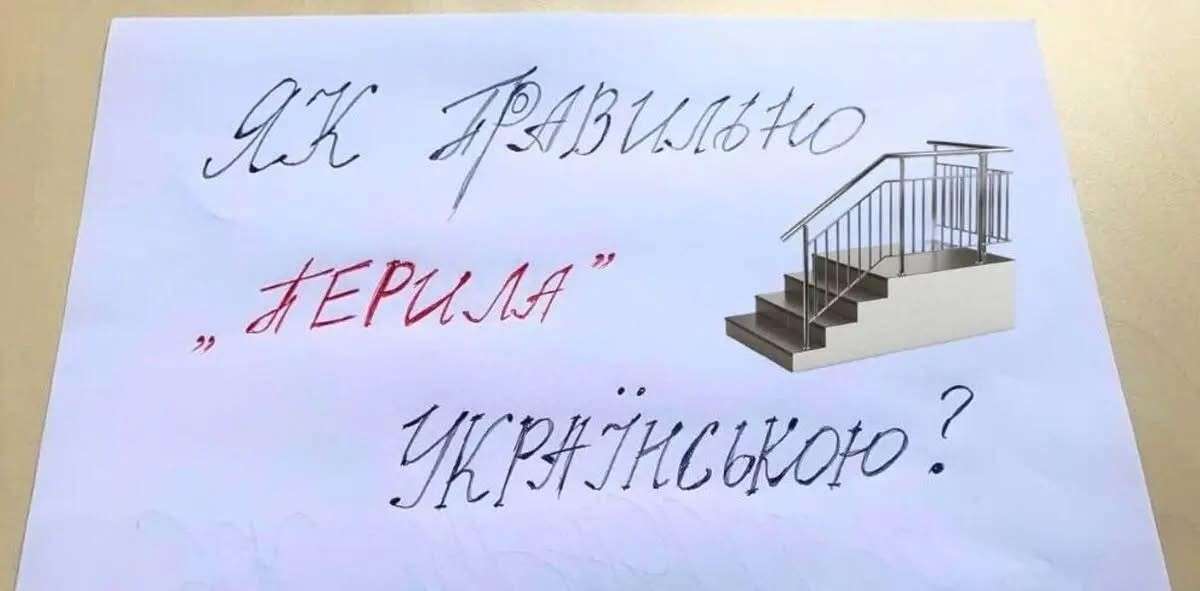 ЯК ПРАВИЛЬНО
„ПЕРИЛА”
УКРАЇНСЬКОЮ?